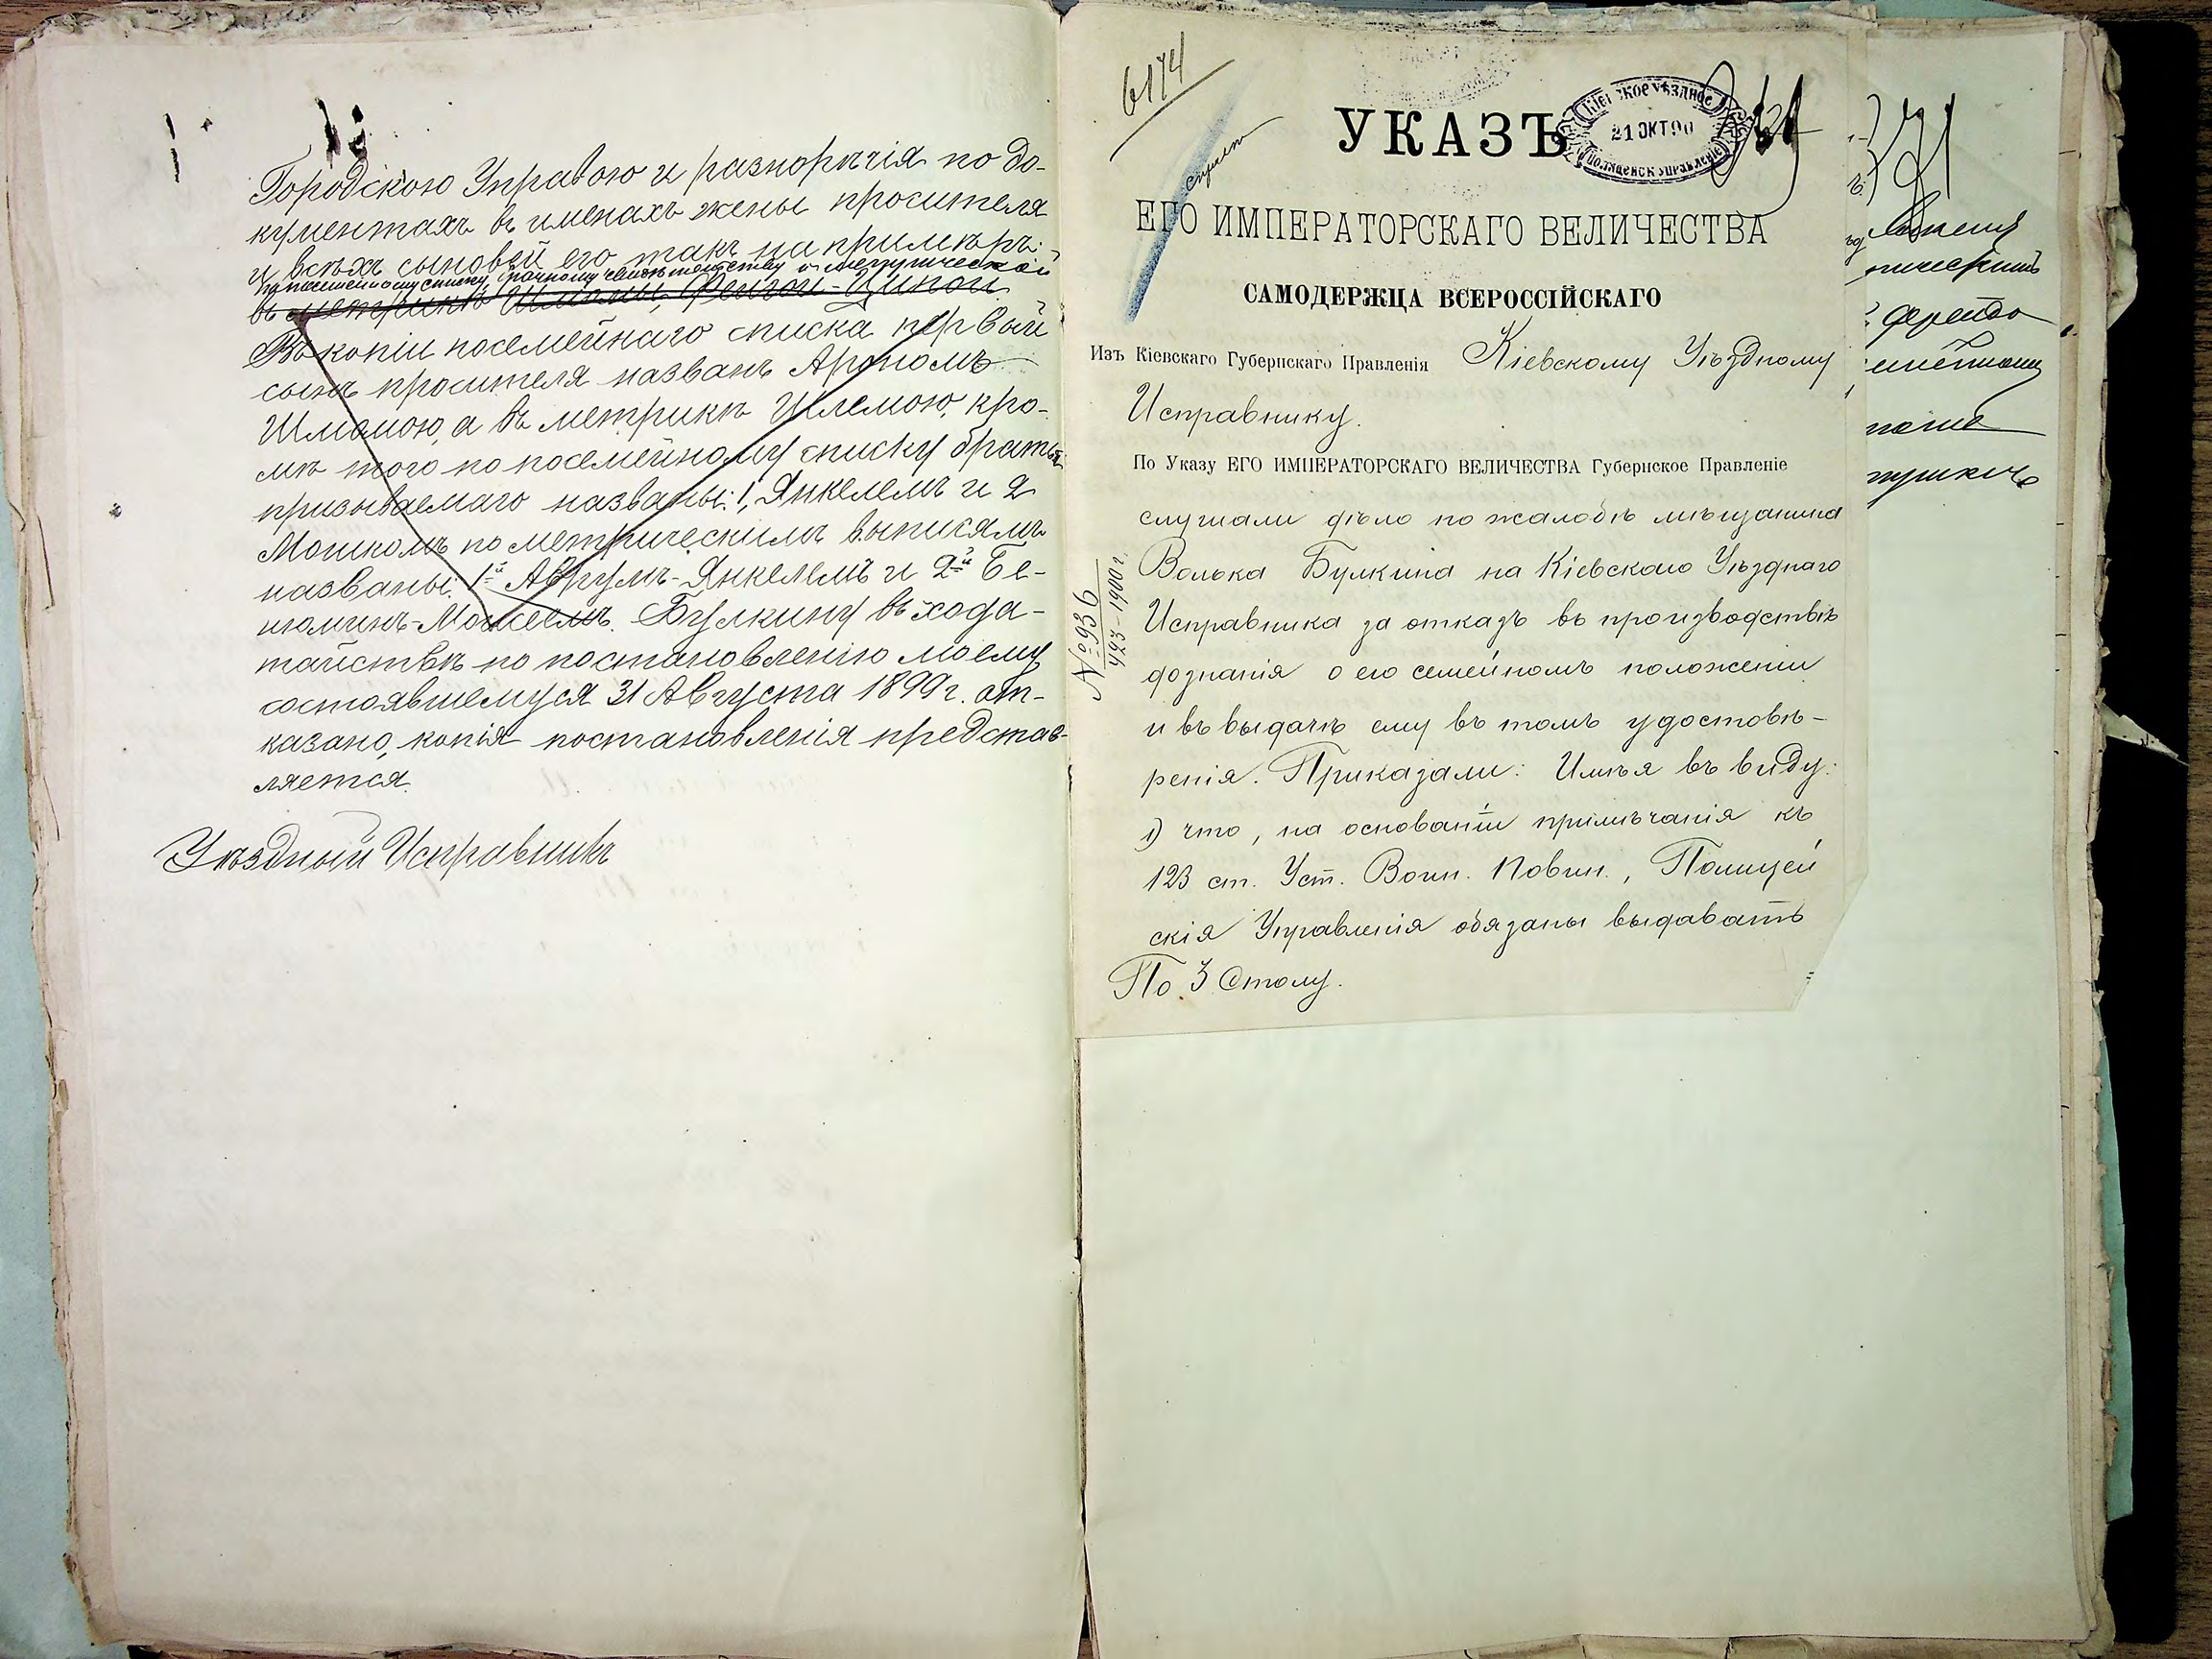 Городскою Управою и разнорѣчія по до-
кументахъ въ именахъ жены просителя
и всѣхъ сыновей его такъ на примѣръ:
по посемейному списку, брачному свидѣтельству и метрической
въ метрикѣ Фейгой-Ципой
Въ копіи посемейнаго списка первый
сынъ просителя названъ Арономъ
Шлемою, а въ метрикѣ Шлемою, кро-
мѣ того по посемейному списку братья
призываемаго названы: 1, Янкелемъ и 2
Мошкомъ по метрическимъ выписямъ
названы: 1й Аврумъ-Янкелемъ и 2й Бе-
нюминъ-Мошкомъ. Булкину въ хода-
тайствѣ по постановленію моему
состоявшемуся 31 Августа 1899 г. от-
казано, копія постановленія представ-
ляется.
Уѣздный Исправникъ
6174
УКАЗЪ
КІЕВСКОЕ УѢЗДНОЕ
21 ОКТ 90
ПОЛИЦЕЙСК УПРАВЛЕНІЕ
ЕГО ИМПЕРАТОРСКАГО ВЕЛИЧЕСТВА
САМОДЕРЖЦА ВСЕРОССІЙСКАГО
Изъ Кіевскаго Губернскаго Правленія Кіевскому Уѣздному
Исправнику.
По Указу ЕГО ИМПЕРАТОРСКАГО ВЕЛИЧЕСТВА Губернское Правленіе
слушали дѣло по жалобѣ мѣщанина
Волька Булкина на Кіевскаго Уѣзднаго
Исправника за отказъ въ производствѣ
дознанія о его семейномъ положеніи
и въ выдачѣ ему въ томъ удостовѣ-
ренія. Приказали: Имѣя въ виду:
1) что, на основаніи примѣчанія къ
123 ст. Уст. Воин. Повин., Полицей
скія Управленія обязаны выдавать
По 3 Столу.
№ 936
423-1900 г.